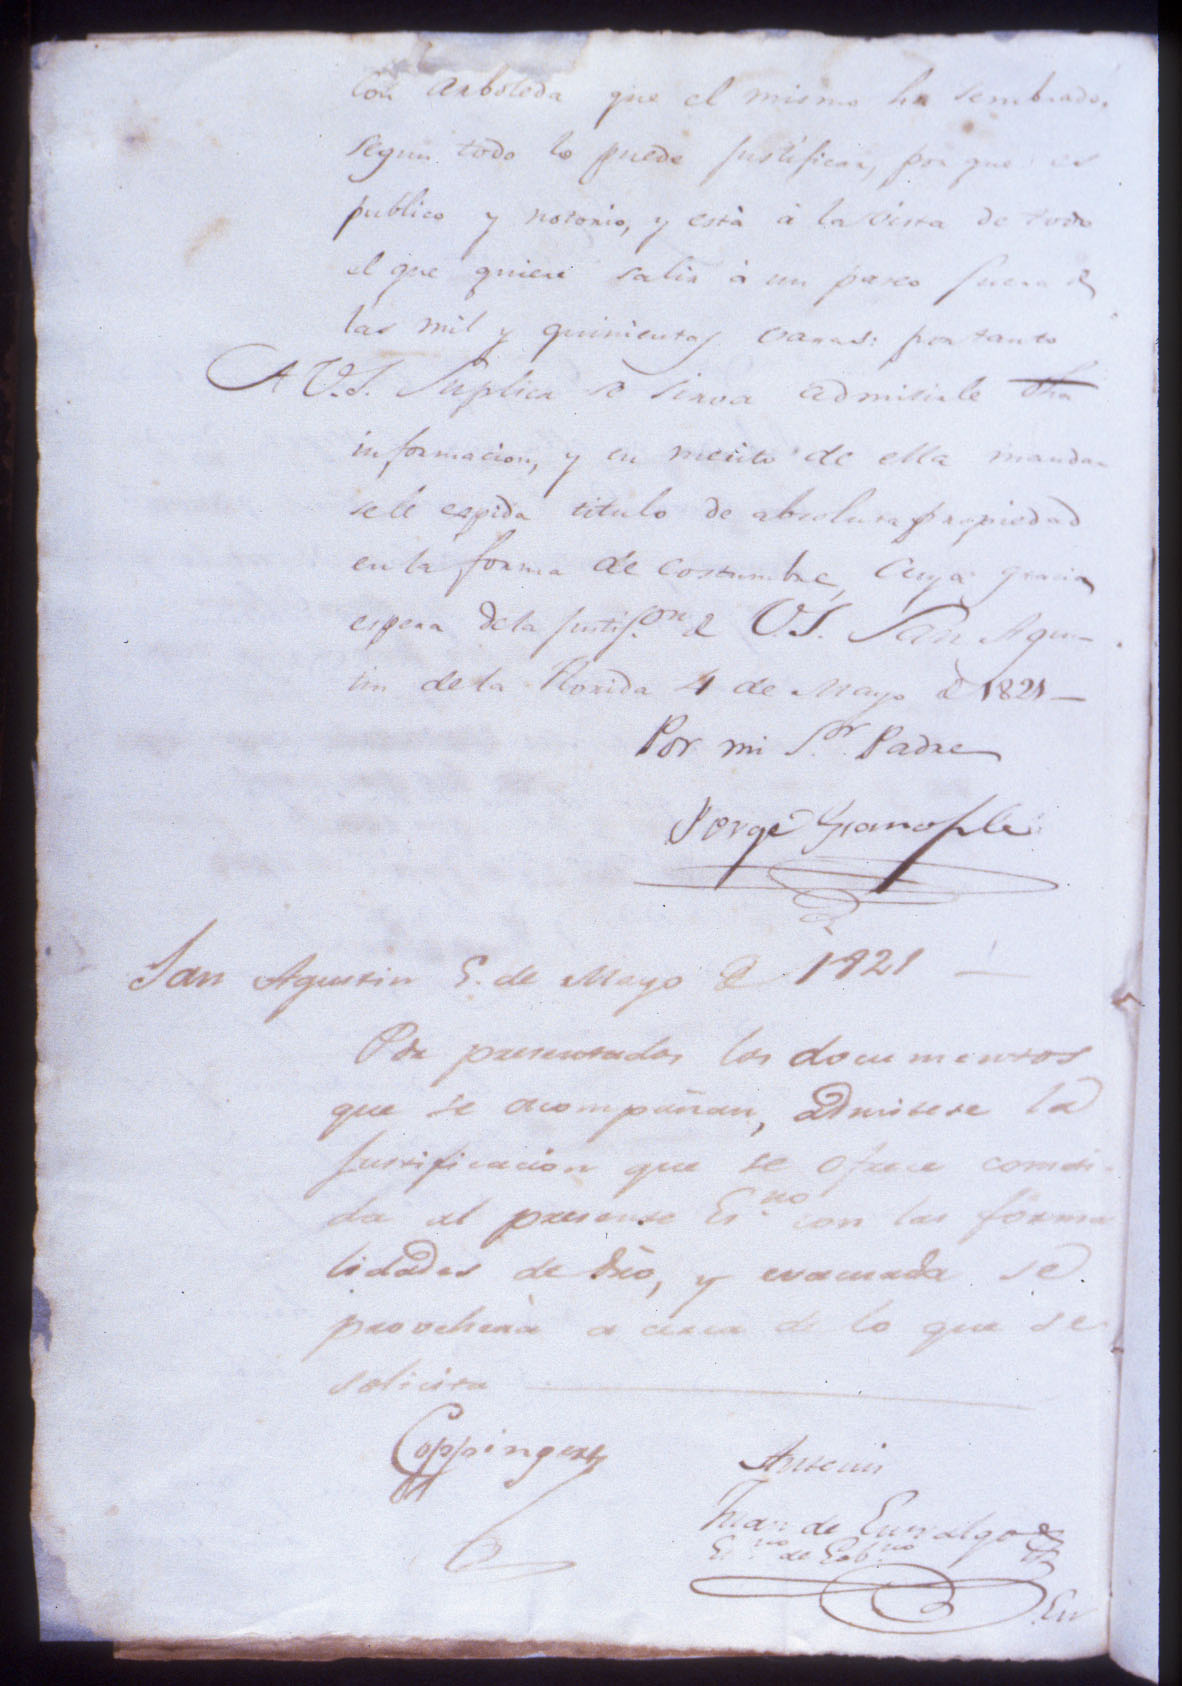 Con arboleda que el mismo ha sembrado,
segun todo lo puede justificar, por que es
publico y notorio, y està à la vista de todo
el que quiere salir à un paseo fuera de
las mil y quinientas varas: por tanto
A V.S. Suplica se sirva admitirle dha
informacion, y en merito de ella mandar
se le espida titulo de absoluta propiedad
en la forma de costumbre, cuya gracia
espera de la justifon de V.S. San Agus-
tin de la Florida 4 de Mayo de 1821—
Por mi Sr. Padre
Jorge Gianople
San Agustin 5. de Mayo de 1821 —
Por presentados los documentos
que se acompañan, admitese la
justificacion que se ofrece cometi-
da al presente Esno con las forma
lidades de dro, y evacuada se
proveherà acerca de lo que se
solicita
Coppinger
Ante mi
Juan de Entralgo
Esno de Gobno
En